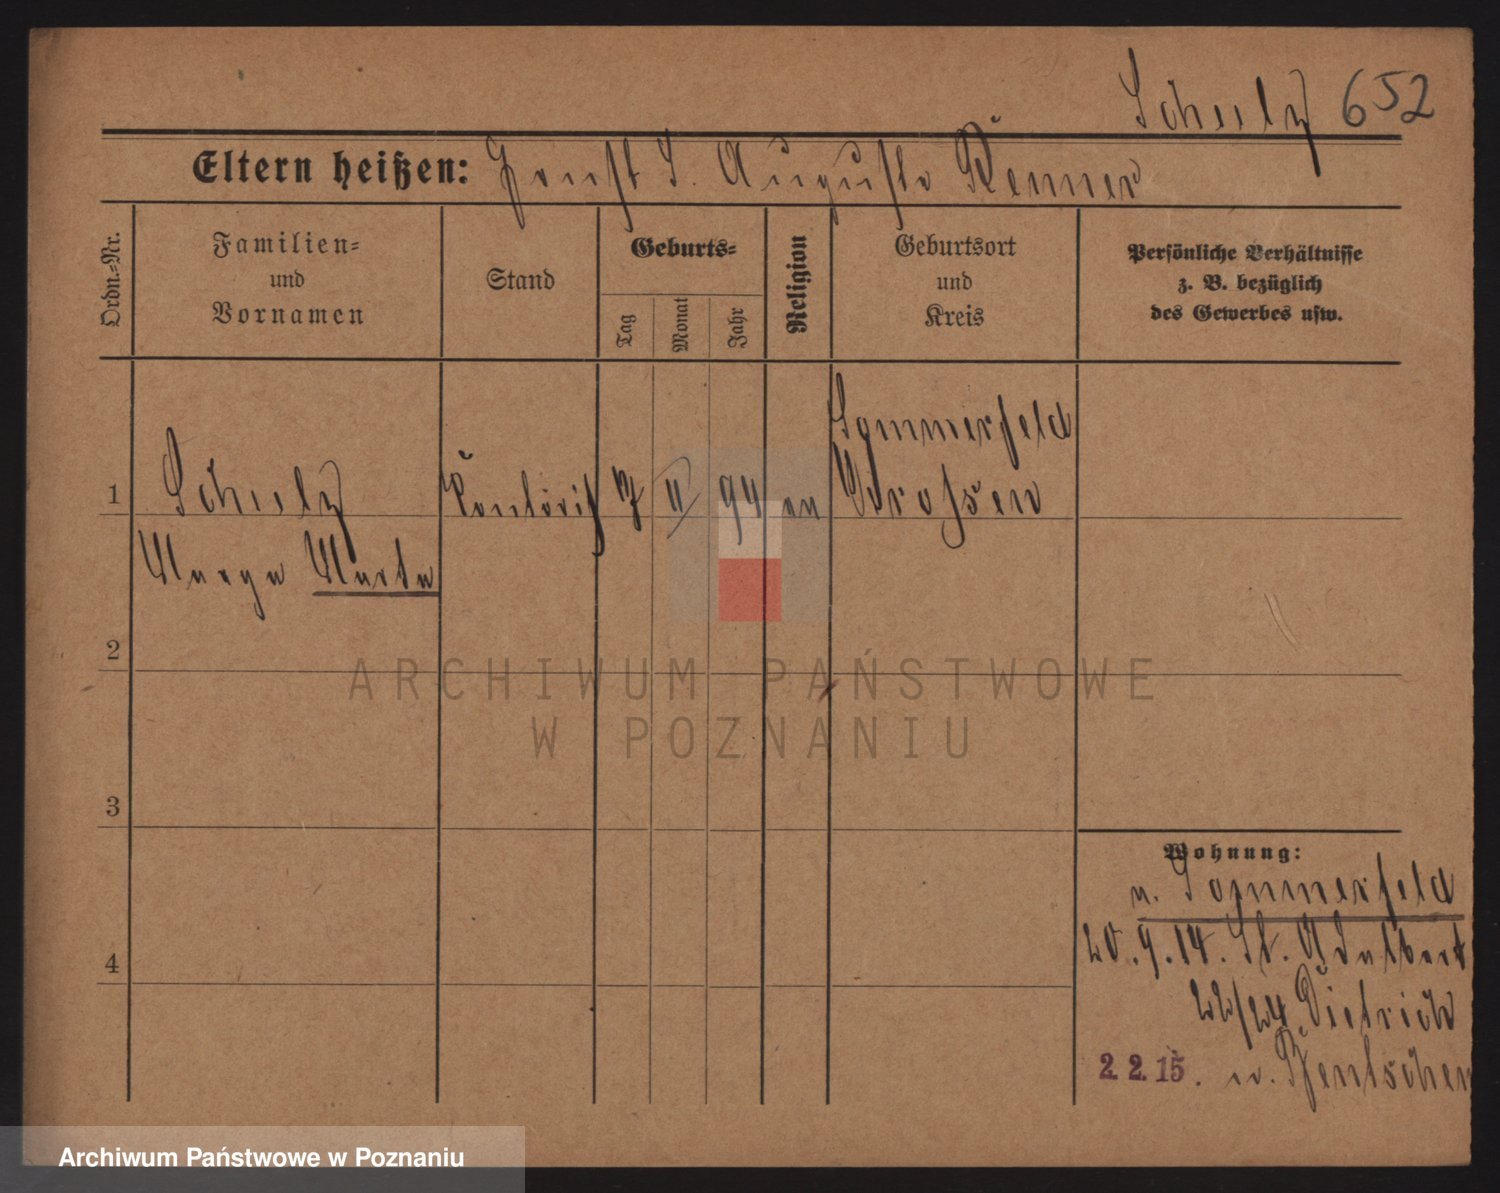 Schulz 652
Eltern heißen: Ernst S. Auguste Renner
Ordn.=Nr.
Familien=
und
Vornamen
Stand
Geburts=
Tag
Monat
Jahr
Religion
Geburtsort
und
Kreis
Persönliche Verhältnisse
z. B. bezüglich
des Gewerbes usw.
Sommerfeld
1 Schulz Kontorist 7 II 94 ev Crossen
Marga Marta
2
ARCHIWUM PAŃSTWOWE
W POZNANIU
3
Wohnung:
n. Sommerfeld
4
20.9.14. St. Adalbert
22/24 Dietrich
2 2. 15. n. Bentschen
Archiwum Państwowe w Poznaniu